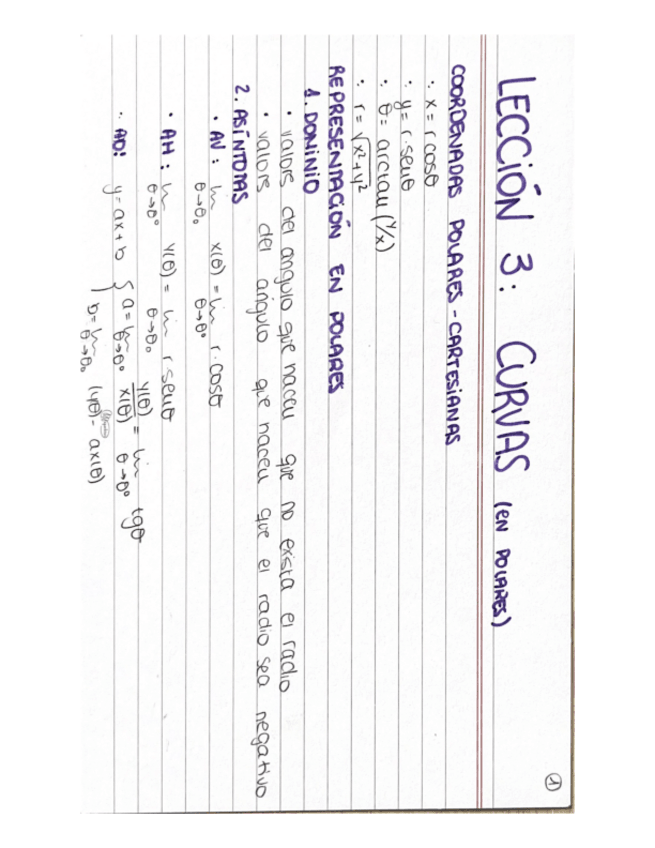 ①
LECCIÓN 3: CURVAS (EN POLARES)
COORDENADAS POLARES - CARTESIANAS
∴ x = r cosθ
∴ y = r·senθ
∴ θ = arctan (y/x)
∴ r = √x²+y²
REPRESENTACIÓN EN POLARES
1. DOMINIO
• valores del angulo que hacen que no exista el radio
• valores del angulo que hacen que el radio sea negativo
2. ASÍNTOTAS
• AV: lim θ→θ₀ x(θ) = lim θ→θ₀ r·cosθ
• AH: lim θ→θ₀ y(θ) = lim θ→θ₀ r·senθ
• AO: y = ax+b { a = lim θ→θ₀ y(θ)/x(θ) = lim θ→θ₀ tgθ
b = lim θ→θ₀ (yθ) - ax(θ)